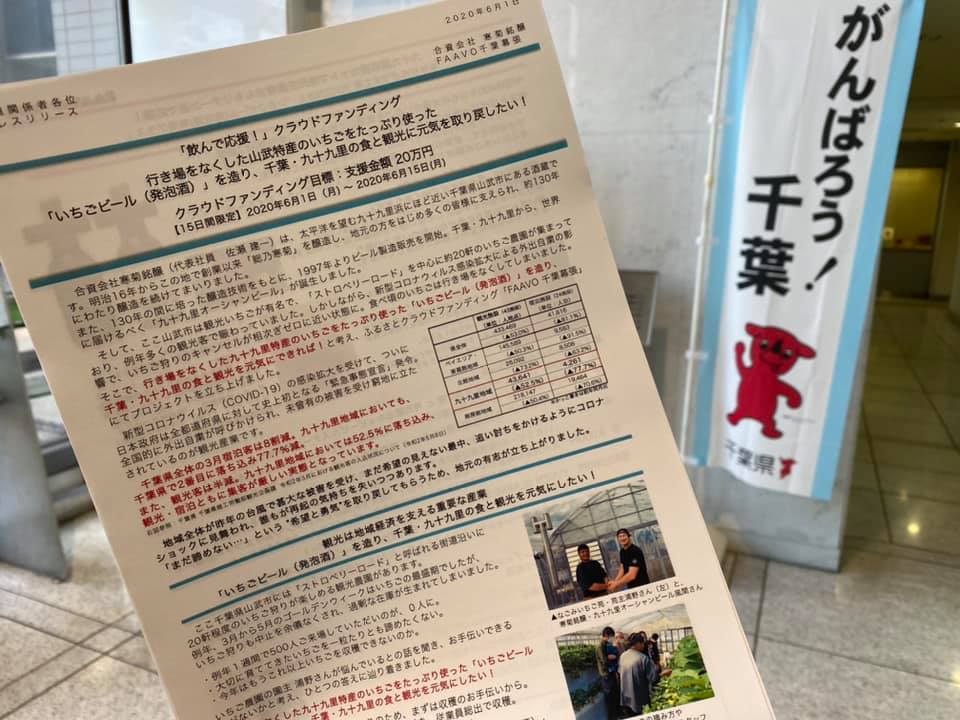 2020年6月1日
合資会社 寒菊銘醸
FAAVO千葉幕張
関係者各位
レスリリース
「飲んで応援！」クラウドファンディング
行き場をなくした山武特産のいちごをたっぷり使った
「いちごビール（発泡酒）」を造り、千葉・九十九里の食と観光に元気を取り戻したい！
クラウドファンディング目標：支援金額 20万円
【15日間限定】2020年6月1日（月）～2020年6月15日(月)
合資会社寒菊銘醸（代表社員 佐瀬 建一）は、太平洋を望む九十九里浜にほど近い千葉県山武市にある酒蔵で
す。明治16年からこの地で創業以来「総乃寒菊」を醸造し、地元の方をはじめ多くの皆様に支えられ、約130年
にわたり醸造を続けてまいりました。
また、130年の間に培った醸造技術をもとに、1997年よりビール製造販売を開始。千葉・九十九里から、世界
に届けるべく「九十九里オーシャンビール」が誕生しました。
そして、ここ山武市は観光いちごが有名で、「ストロベリーロード」を中心に約20軒のいちご農園が集まって
おり、例年多くの観光客で賑わっていました。しかしながら、新型コロナウィルス感染拡大による外出自粛の影
響で、いちご狩りのキャンセルが相次ぎゼロに近い状態に。食べ頃のいちごは行き場をなくしてしまいました。
そこで、行き場をなくした九十九里特産のいちごをたっぷり使った「いちごビール（発泡酒）」を造り、
千葉・九十九里の食と観光を元気にできれば！と考え、ふるさとクラウドファンディング「FAAVO 千葉幕張」
にてプロジェクトを立ち上げました。
新型コロナウイルス（COVID-19）の感染拡大を受けて、ついに
日本政府は全都道府県に対して史上初となる「緊急事態宣言」発令。
全国的に外出自粛が呼びかけられ、未曾有の被害を受け窮地に立た
されているのが観光産業です。
千葉県全体の3月宿泊客は8割減。九十九里地域においても、
千葉県で2番目に落ち込み77.7%減。
また、観光客は半減。九十九里地域においては52.5%に落ち込み、
観光・宿泊ともに集客が厳しい実態となっています。
県全体 433,469
ベイエリア 145,589
43,641
(▲52.5%)
4,261
(▲77.7%)
地域全体が昨年の台風で甚大な被害を受け、まだ希望の見えない最中、追い討ちをかけるようにコロナ
ショックに見舞われ、誰もが再起の気持ちを失いつつあります。
「まだ諦めない…」という"希望と勇気"を取り戻してもらうため、地元の有志が立ち上がりました。
観光は地域経済を支える重要な産業
「いちごビール（発泡酒）」を造り、千葉・九十九里の食と観光を元気にしたい！
ここ千葉県山武市には「ストロベリーロード」と呼ばれる街道沿いに
20軒程度のいちご狩りが楽しめる観光農園があります。
例年、3月から5月のゴールデンウィークはいちごの最盛期でしたが、
いちご狩りも中止を余儀なくされ、過剰な在庫が生まれてしまいました。
・例年1週間で500人ご来場していただいのが、0人に。
・大切に育ててきたいちごを一粒たりとも諦めたくない。
・今年はもうこれ以上いちごを収穫できないのか。
いちご農園の園主 浦野さんが悩んでいるとの話を聞き、お手伝いできる
がないかと考え、ひとつの答えに辿り着きました。
くした九十九里特産のいちごをたっぷり使った「いちごビール
千葉・九十九里の食と観光を元気にしたい！
のため、まずは収穫のお手伝いから。
従業員総出で収穫。
▲なごみいちご苑・苑主浦野さん（左）と、
寒菊銘醸・九十九里オーシャンビール風間さん
がんばろう！
千葉
千葉県